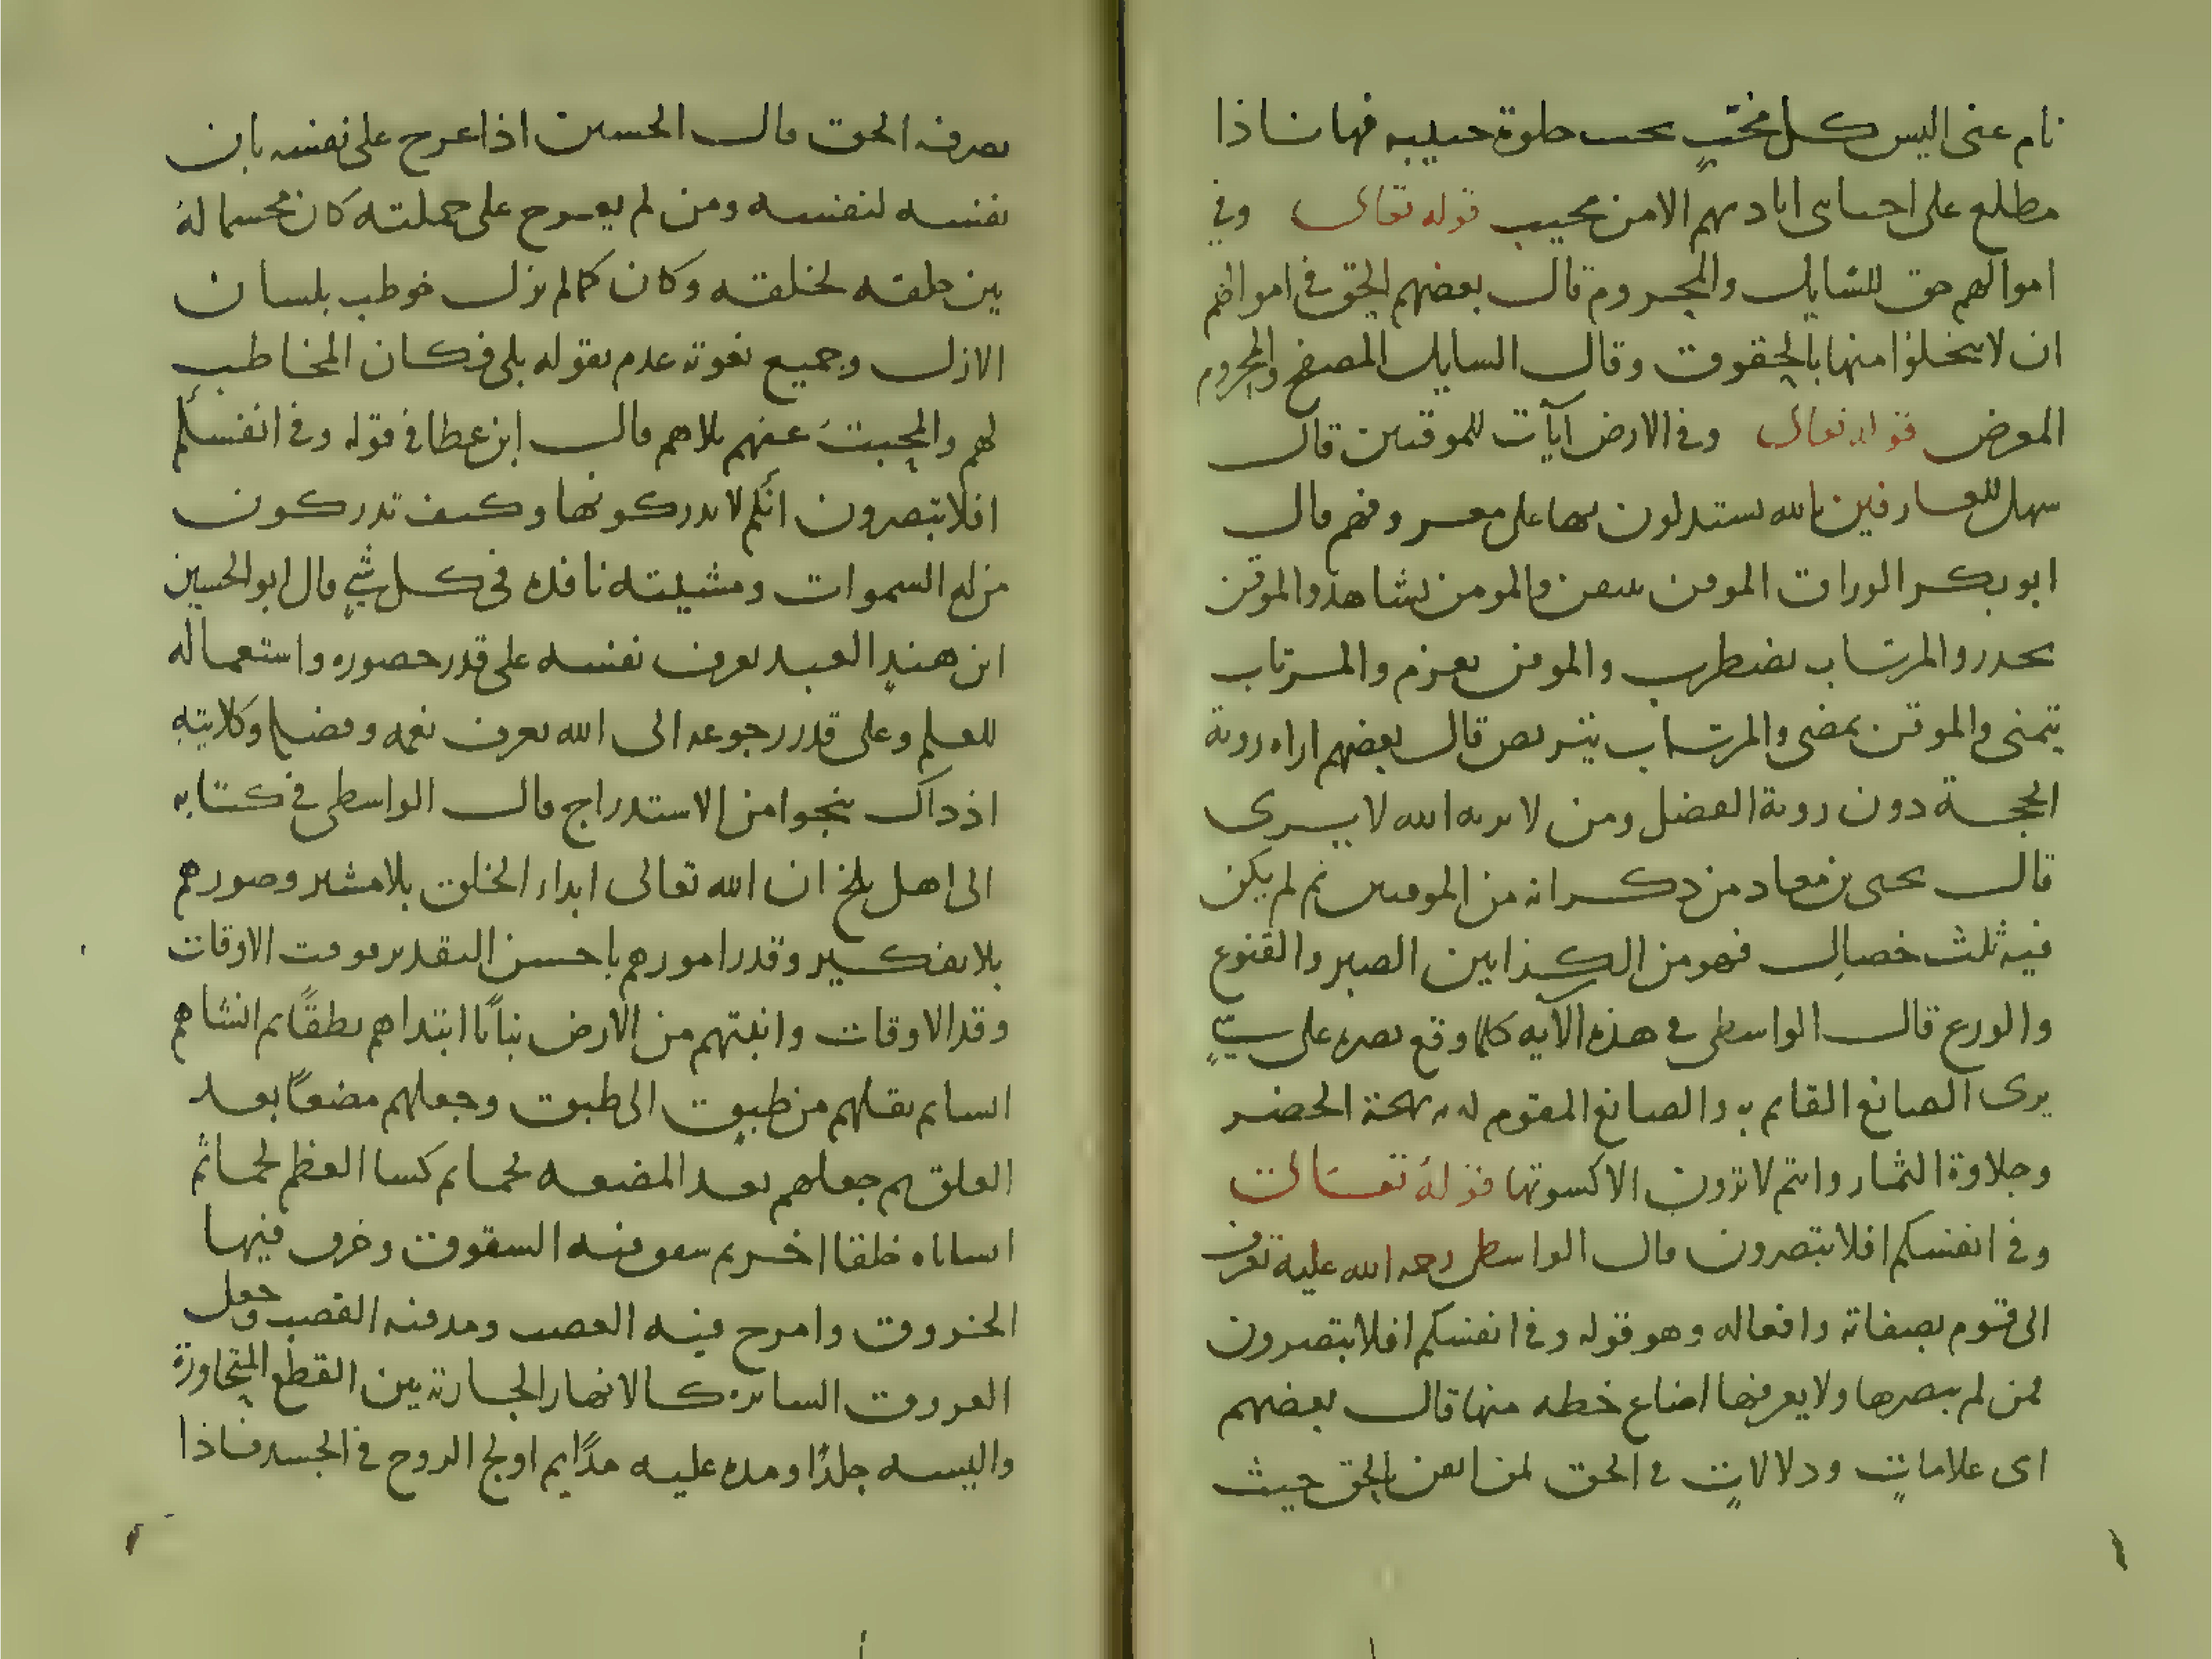 نام عنى اليس كل محب يحب خلوة حبيبه فها نا ذا
مطلع على احبائى اناديهم الا من مجيب قوله تعالى وفي
اموالهم حق للسايل والمحروم قال بعضهم الحق في اموالهم
ان لا يبخلوا منها بالحقوق وقال السايل المصفح والمحروم
المعرض قوله تعالى وفي الارض آيات للموقنين قال
سهل للعارفين بالله يستدلون بها على معروفهم قال
ابو بكر الوراق الموقن والمومن يشاهد والموقن
يحذر والمرتاب يضطرب والموقن يعزم والمرتاب
يتمنى والموقن يمضى والمرتاب يتربص قال بعضهم اراه روية
الحجة دون روية الفضل ومن لا يريه الله لا يرى
قال يحيى بن معاد من ذكر انه من الموقنين ثم لم يكن
فيه ثلث خصال فهو من الكذابين الصبر والقنوع
والورع قال الواسطى في هذه الآيه كلما وقع بصره على شيٍ
يرى الصانع القايم به والصانع المقوم له بهجة الخضر
وحلاوة الثمار وانتم لا ترون الا كسوتها قوله تعالى
وفي انفسكم افلا تبصرون قال الواسطى رحمه الله عليه تعرف
الى قوم بصفاته وافعاله وهو قوله وفي انفسكم افلا تبصرون
لمن لم يبصرها ولا يعرفها اضاع خطه منها قال بعضهم
اى علاماتٍ ودلالاتٍ في الحق لمن ايقن بالحق حيث
يصرفه الحق قال الحسين اذا عرج على نفسه بان
نفسه لنفسه ومن لم يعرج على جملته كان له
بين خلقه لخلقه وكان كما لم يزل خوطب بلسان
الازل وجميع نعوته عدم بقوله بلى فكان المخاطب
لهم والمجيب عنهم بلاهم قال ابن عطا في قوله وفي انفسكم
افلا تبصرون انكم لا تدركونها وكيف تدركون
من له السموات ومشيئته نافذه في كل شيٍ قال ابو الحسين
ابن هندٍ العبد يعرف نفسه على قدر حضوره واستعماله
للعلم وعلى قدر رجوعه الى الله يعرف نعمه وفضله وكلايته
اذ ذاك ينجوا من الاستدراج قال الواسطى في كتابه
الى اهل بلخ ان الله تعالى ابداء الخلق بلا مشير وصورهم
بلا تفكير وقدر امورهم باحسن التقدير فوقت الاوقات
وقد الاوقات وانبتهم من الارض نباتًا ابتداهم نطفًا ثم انشاهم
انشا ثم نقلهم من طبق الى طبق وجعلهم مضعًا بعد
العلق ثم جعلهم بعد المضعه لحما ثم كسا العظم لحما ثم
انشاناه خلقا اخر ثم فيه السقوق وخرق فيها
الخروق وامرج فيه العصب ومد فيه القصب وجعل
العروق السايره كالانهار الجارية بين القطع المتجاورة
والبسه جلدًا ومده عليه مدًا ثم اولج الروح في الجسد فاذا